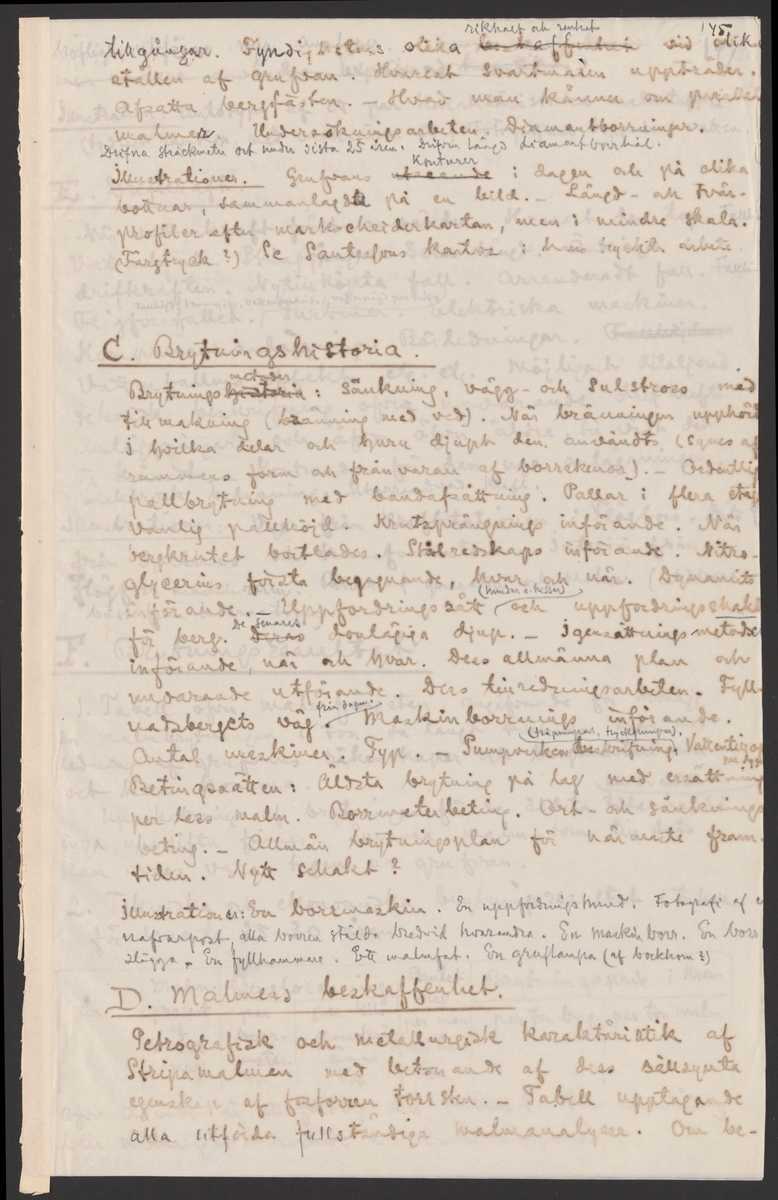 145
rikhalt och renhet
tillgångar. Fyndigheters olika beskaffenhet vid olika
ställen af grufvan. Hvarest svartmalm uppträder.
Afsatta bergfästen. — Hvad man känner om
malmer. Undersökningsarbeten. Diamantborrningar.
Drifna sträckmeter ort under sista 25 åren. Drifven längd diamantborrhål.
Konturer
Illustrationer. Grufvans utseende i dagen och på olika
bottnar, sammanlagda på en bild. — Längd- och Tvär-
profiler efter markscheiderkartan, men i mindre skala.
(Färgtryck?) Se Santessons kartor i hans tryckta arbete
C. Brytningshistoria.
metoder
Brytningshistoria: Sänkning, vägg- och sulstross med
tillmakning (bränning med ved). När bränningen upphörde
i hvilka delar och huru djupt den användts, (synes af
rummens form och frånvaron af borrskenor). — Ordentlig
pallbrytning med bandafsättning. Pallar i flera etager
Vanlig pallhöjd. Krutsprängnings införande. När
bergkrutet bortlades. Stålredskaps införande. Nitro-
glycerins första begagnande, hvar och när. Dynamits
(hundar o. hissar)
införande. — Uppfordringssätt och uppfordringsschakt
De senares
för berg. Deras donlägiga djup. — Igensättningsmetodens
införande, när och hvar. Dess allmänna plan och
nuvarande utförande. Dess tillredningsarbeten. Fyll-
från dagen.
nadsbergets väg. Maskinborrnings införande.
Antal maskiner. Typ. — Pumpverken beskrifning.
Betingssätten: Äldsta brytning på lag med ersättning
per lass malm. Borrmeterbeting. Ort- och sänknings-
beting. — Allmän brytningsplan för närmaste fram-
tiden. Nytt schakt?
Illustrationer: En borrmaskin. En uppfordringshund. Fotografi af en
nafvarpost, alla borren stälda bredvid hvarandra. En maskinborr. En borr-
slägga. En fyllhammare. Ett malmfat. En gruflampa (af bockhorn?)
D. Malmens beskaffenhet.
Petrografisk och metallurgisk karaktäristik af
Stripamalmen med betonande af dess sällsynta
egenskap af fosforren torrsten. — Tabell upptagande
alla utförda fullständiga malmanalyser. Om be-